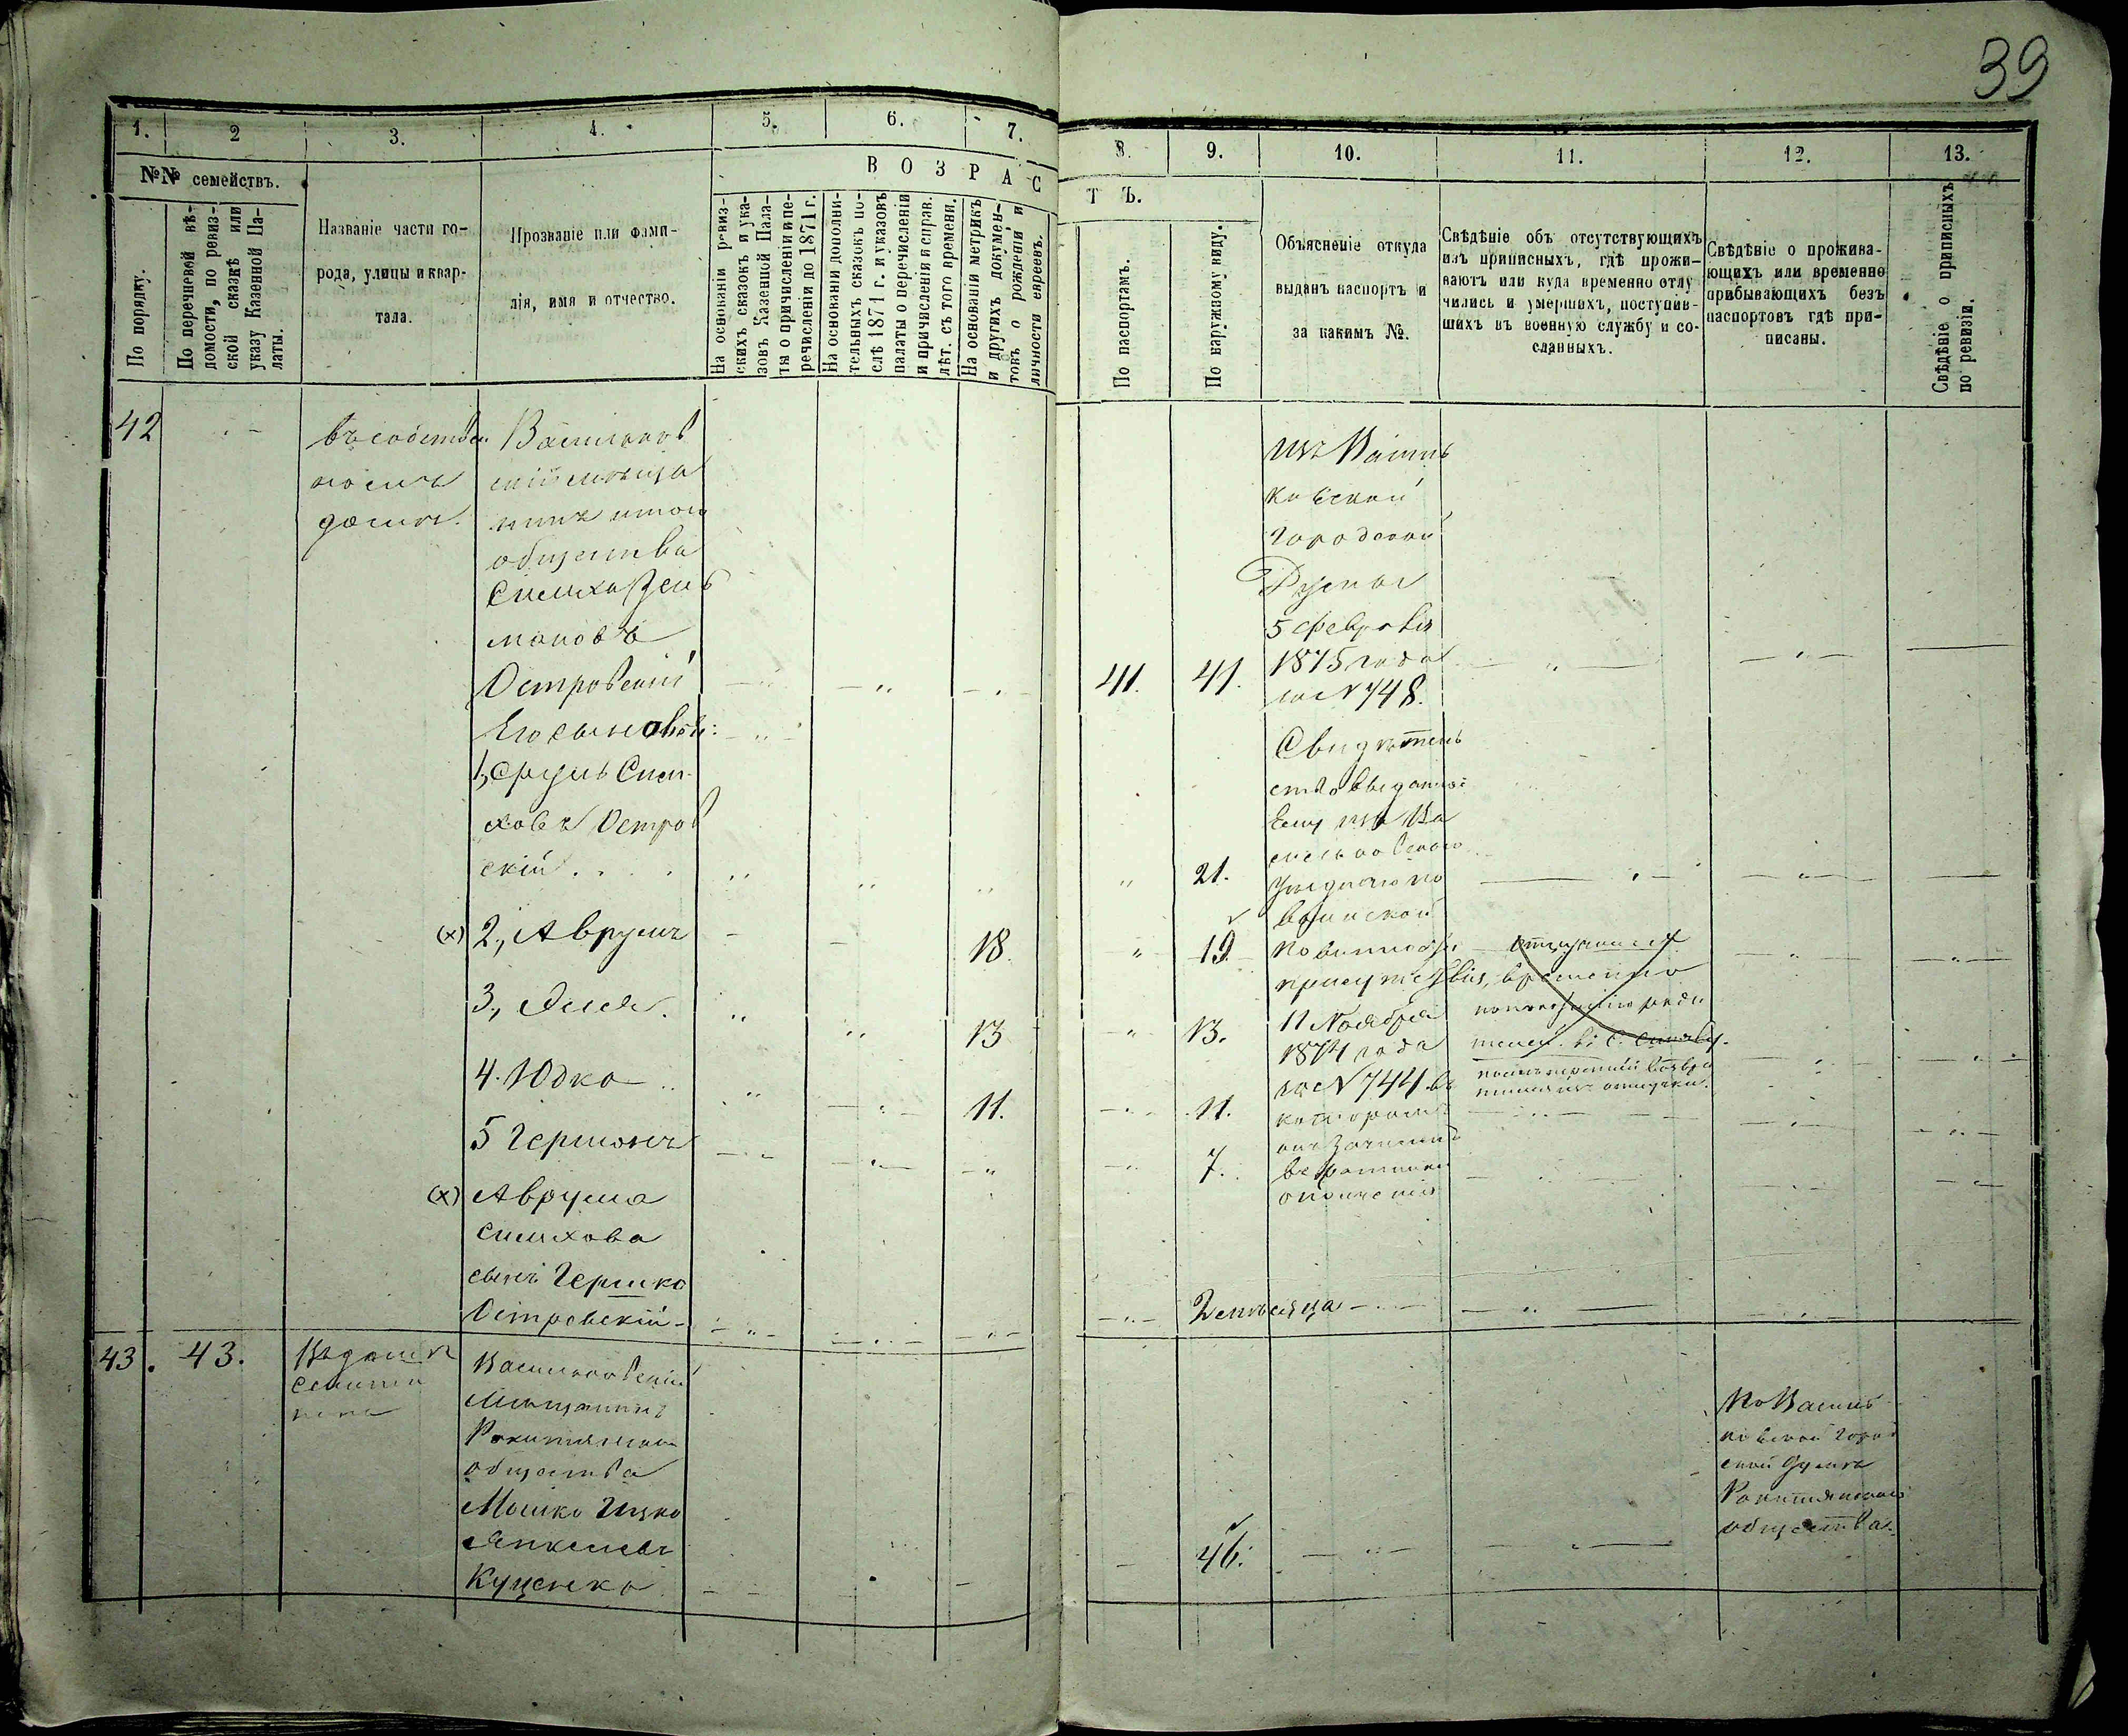 39
1. 2 3. 4. 5. 6. 7. 8. 9. 10. 11. 12. 13.
№№ семействъ.
По порядку.
По перечневой вѣ-
домости, по ревиз-
ской сказкѣ или
указу Казенной Па-
латы.
Названіе части го-
рода, улицы и квар-
тала.
Прозваніе или фами-
лія, имя и отчество.
ВОЗРАСТЪ.
На основаніи ревиз-
скихъ сказокъ и ука-
зовъ Казенной Пала-
ты о причисленіи и пе-
речисленіи до 1871 г.
На основаніи дополни-
тельныхъ сказокъ по-
слѣ 1871 г. и указовъ
палаты о перечисленіи
и причисленіи и справ.
лѣт. съ того времени.
На основаніи метрикъ
и другихъ докумен-
товъ о рожденіи и
личности евреевъ.
По паспортамъ.
По наружному виду.
Объясненіе откуда
выданъ паспортъ и
за какимъ №.
Свѣдѣніе объ отсутствующихъ
изъ приписныхъ, гдѣ прожи-
ваютъ или куда временно отлу
чились и умершихъ, поступив-
шихъ въ военную службу и со-
сланныхъ.
Свѣдѣніе о прожива-
ющихъ или временно
прибывающихъ безъ
паспортовъ гдѣ при-
писаны.
Свѣдѣніе о приписныхъ
по ревизіи.
42
въ собствен
номъ
домѣ.
Васильков
скій мѣща
нинъ
общества
Симха Зель
мановъ
Островскій
41. 41.
изъ Василь
ковской
городской
Думы
5 февраля
1875 года
за № 748.
Его сыновья:
1, Срулъ Сим-
ховъ Остров
скій . . . .
21.
Свидѣтель
ство выданное
Ему изъ Ва
сильковскаго
уѣзднаго по
воинской
повинности
присутствія,
11 Ноября
1874 года
за № 744. въ
которомъ
онъ зачисленъ
въ ратники
ополченія
(х) 2., Аврумъ
18. 19.
временно
3.,
13 13.
4. Юдко
11. 11.
5 Гершонъ
7.
(х) Аврума
Симхова
сынъ Гершко
Островскій
2 мѣсяца
43. 43.
Въ домѣ
Васильковскій
Мѣщанинъ
Рокитянскаго
общества
Мошко Ицко
Янкелевъ
Куценко
46.
По Василь
ковской Город
ской Думѣ
Рокитянскаго
общества.